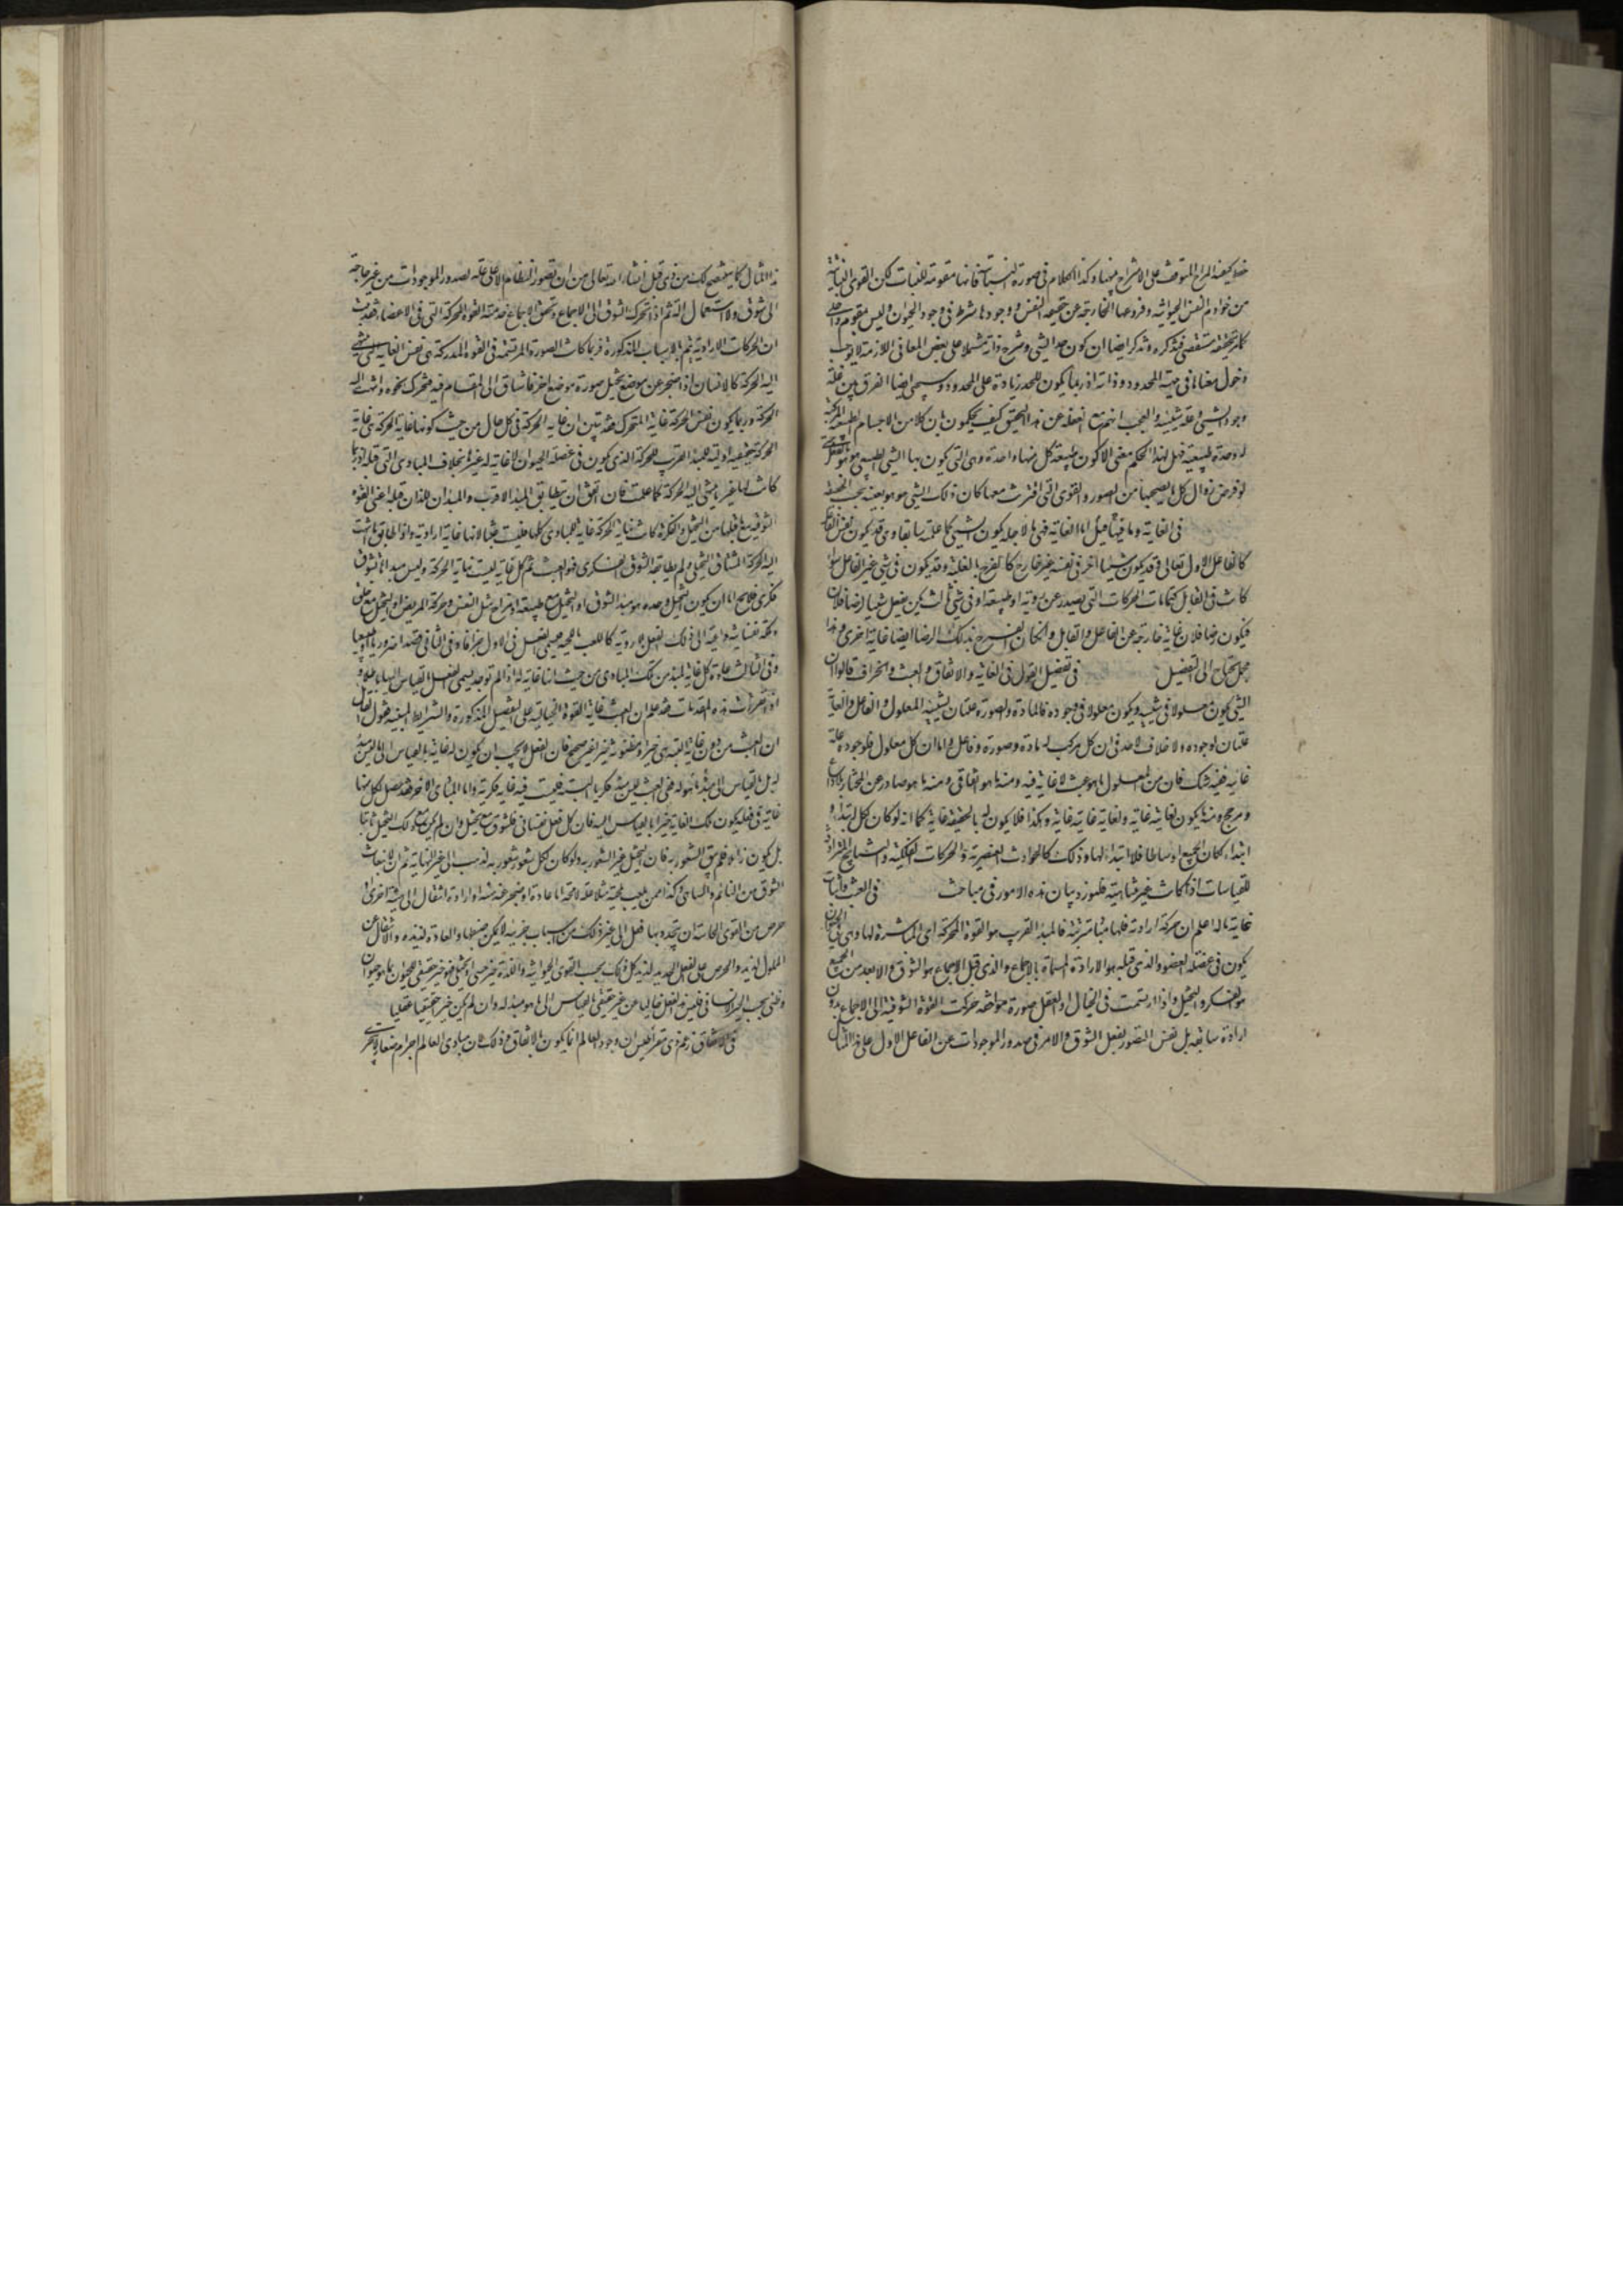 خط كيفية المزاج المتوقف على الامتزاج بينها وكذا الكلام في صورة النباتية فانها مقومة للنبات لكن القوى النباتية
من خوادم النفس الحيوانية وفروعها الخارجة عن حقيقة النفس ووجودها شرط في وجود الحيوان وليس مقوم داخلي
كما مر تحقيقه مستقصى فتذكره وتذكر ايضا ان كون حد الشيء وشرح ذاته مشتملا على بعض المعاني اللازمة لا يوجب
دخول معناها في مهية المحدود وذاته اذ ربما يكون للحد زيادة على المحدود وسيجيء ايضا الفرق بين علة
وجود الشيء وعلة شيئيته والعجب انهم مع الغفلة عن هذا التحقيق كيف يحكمون بان كلا من الاجسام الطبيعية المركبة
له وحدة طبيعية فهل لهذا الحكم معنى الا كون طبيعة كل منها واحدة وهي التي يكون بها الشيء الطبيعي هو هو بالفعل حتى
لو فرض زوال كل ما يصحبها من الصور والقوى التي اقترنت معها كان ذلك الشيء هو هو بعينه بحسب الحقيقة
في الغاية وما قيل فيها اما الغاية فهي ما لاجله يكون الشيء كما علمته سابقا وهي قد يكون نفس الفاعل
كالفاعل الاول تعالى وقد يكون شيئا اخر في نفسه غير خارج كالفرح بالغلبة وقد يكون في شيء غير الفاعل سواء
كانت في القابل كتمامات الحركات التي يصدر عن روية او طبيعة او في شيء ثالث كمن يفعل شيئا لرضا فلان
فيكون رضا فلان غاية خارجة عن الفاعل والقابل وان كان الفرح بذلك الرضا ايضا غاية اخرى وهذا
مجمل يحتاج الى التفصيل في تفصيل القول في الغاية والاتفاق والعبث والجزاف قالوا ان
الشيء يكون معلولا في شيئيته ويكون معلولا في وجوده فالمادة والصورة علتان لشيئية المعلول والفاعل والغاية
علتان لوجوده ولا خلاف لاحد في ان كل مركب له مادة وصورة وفاعل واما ان كل معلول فلوجوده علة
غائية ففيه شك فان من المعلول ما هو عبث لا غاية فيه ومنه ما هو اتفاقي ومنه ما هو صادر عن المختار بلا داع
ومرجح ومنه يكون لغايته غاية ولغاية غايته غاية وهكذا فلا يكون له بالحقيقة غاية كما انه لو كان لكل ابتداء
ابتداء لكان الجميع اوساطا فلا ابتداء لها وذلك كالحوادث العنصرية والحركات الفلكية والنتايج المترادفة
للقياسات اذا كانت غير متناهية فلنورد بيان هذه الامور في مباحث في العبث واثبات
غاية ما له اعلم ان حركة ارادية فلها مباد مترتبة فالمبدأ القريب هو القوة المحركة اى المباشرة لها وهي في الحيوان
يكون في عضلة العضو والذي قبله هو الارادة المسماة بالاجماع والذي قبل الاجماع هو الشوق والابعد من الجميع
هو الفكر والتخيل واذا ارتسمت في الخيال او العقل صورة موافقة حركت القوة الشوقية الى الاجماع بدون
ارادة سابقة بل نفس التصور يفعل الشوق والامر في صدور الموجودات عن الفاعل الاول على هذا المثال
هذا المثال كما ينتضح لك من ذي قبل انشاء الله تعالى من ان تصور النظام الاعلى علة لصدور الموجودات من غير حاجة
الى شوق ولا استعمال الة ثم اذا تحرك الشوق الى الاجماع وتحقق الاجماع خدمته القوة المحركة التي في الاعضاء فقد ثبت
ان الحركات الارادية يتم بالاسباب المذكورة فربما كانت الصورة المرتسمة في القوة المدركة هي نفس الغاية التي ينتهي
اليه الحركة كالانسان اذا ضجر عن موضع فتخيل صورة موضع اخر فاشتاق الى المقام فيه فتحرك نحوه وانتهت اليه
الحركة وربما يكون نفس الحركة غاية المتحرك فقد تبين ان غاية الحركة في كل حال من حيث كونها غاية الحركة هي غاية
الحركة حقيقية اولية للمبدأ القريب للحركة الذي يكون في عضلة الحيوان لا غاية له غيرها بخلاف المبادي التي قبله فربما
كانت لها غير ما ينتهي اليه الحركة كما علمت فان اتفق ان يتطابق المبدأ الاقرب والمبدآن اللذان قبله اعني القوة
الشوقية مع ما قبلها من التخيل والفكرة كانت نهاية الحركة غاية للمبادي كلها فليست عبثا لانها غاية ارادية واذا طابق ما انتهت
اليه الحركة المشتاق التخيلي ولم يطابقه الشوق الفكري فهو العبث ثم كل غاية ليست نهاية الحركة وليس مبدأها تشوق
فكري فلا يخلو اما ان يكون التخيل وحده هو مبدأ الشوق او التخيل مع طبيعة او مزاج مثل التنفس وحركة المريض او التخيل مع خلق
وملكة نفسانية داعية الى ذلك الفعل بلا روية كاللعب باللحية فيسمى الفعل في الاول جزافا وفي الثاني قصدا ضروريا او طبيعيا
وفي الثالث عادة وكل غاية لمبدأ من تلك المبادي من حيث انها غاية له اذا لم توجد يسمى الفعل بالقياس اليها باطلا
اذا تقررت هذه المقدمات فقد علم ان العبث غاية القوة الخيالية على التفصيل المذكورة والشرايط المبينة فقول القائل
ان العبث من دون غاية البتة هي خير او مظنونة خيرا غير صحيح فان الفعل لا يجب ان يكون له غاية بالقياس الى ما ليس مبدأ
له بل بالقياس الى مبدأ ما هو له ففي العبث ليس مبدأ فكريا البتة فليست فيه غاية فكرية واما المبادي الاخر فقد حصل لكل منها
غاية في فعله يكون تلك الغاية خيرا بالقياس اليه فان كل فعل نفساني فلشوق مع تخيل وان لم يكن مع ذلك التخيل ثابتا
بل يكون زائلا فلم يبق الشعور به فان التخيل غير الشعور به ولو كان لكل شعور شعور به لذهب الى غير النهاية ثم ان لانبعاث
الشوق من النائم والساهي وكذا ممن يلعب بلحيته مثلا علة لا محة اما عادة او ضجر عن هيئة او ارادة انتقال الى هيئة اخرى او
حرص من القوى الحاسة ان يتجدد بها فعل الى غير ذلك من اسباب جزئية لا يمكن ضبطها والعادة لذيذة والانتقال عن
المملول لذيذ والحرص على الفعل الجديد لذيذ كل ذلك بحسب القوى الحيوانية واللذة خير حسي او تخيلي فهو خير حقيقي للحيوان بما هو حيوان
وظني بحسب الخير الانساني فليس هذا الفعل خاليا عن خير حقيقي بالقياس الى ما هو مبدأ له وان لم يكن خيرا حقيقيا عقليا
في الاتفاق زعم ذي مقراطيس ان وجود العالم انما يكون بالاتفاق وذلك لان مبادي العالم اجرام صغار لا تتجزى